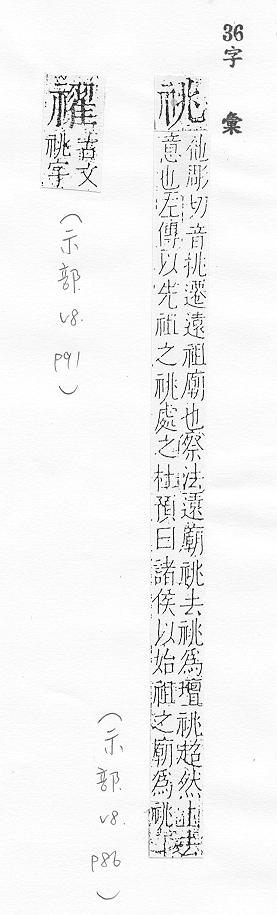 36
字彙
祧
他彫切音挑遷遠祖廟也祭法遠廟祧去祧為壇祧超然上去
意也左傳以先祖之祧處之杜預曰諸侯以始祖之廟為祧
（示部 v8. p86）
𥜰
古文
祧字
（示部 v8. p91）